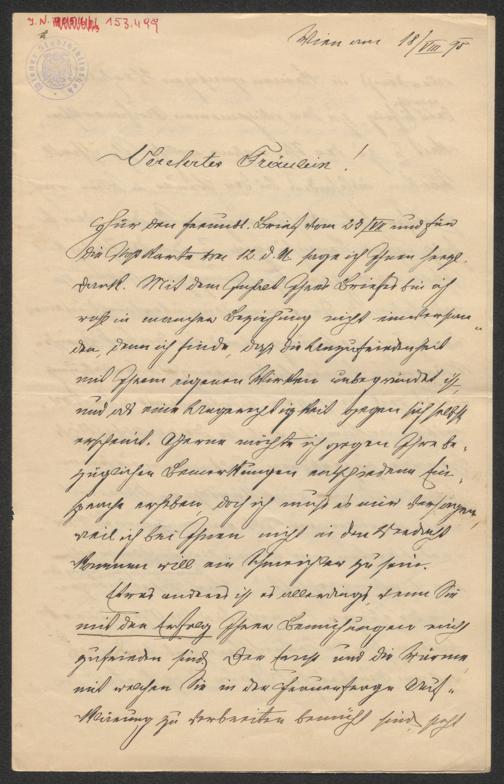 J. N. 153.499
Wiener Stadtbibliothek
Wien am 18/VIII 95
Verehrtes Fräulein!
Für den freundl. Brief vom 23/VII und für
die Postkarte vom 12. d. M. sage ich Ihnen herzl.
Dank. Mit dem Inhalt Ihres Briefes bin ich
in mancher Beziehung nicht einverstan-
den, denn ich finde, daß die Unzufriedenheit
mit Ihrem eigenen Wirken unbegründet ist,
und als eine Ungerechtigkeit gegen sich selbst
erscheint. Gerne möchte ich gegen Ihre be-
züglichen Bemerkungen entschiedene Ein-
sprache erheben, doch ich muß es mir versagen,
weil ich bei Ihnen nicht in den Verdacht
kommen will ein Schmeichler zu sein.
Etwas anderes ist es allerdings, wenn Sie
mit dem Erfolg Ihrer Bemühungen nicht
zufrieden sind. Der Ernst und die Wärme
mit welchen Sie in der Frauenfrage Auf-
klärung zu verbreiten bemüht sind, steht